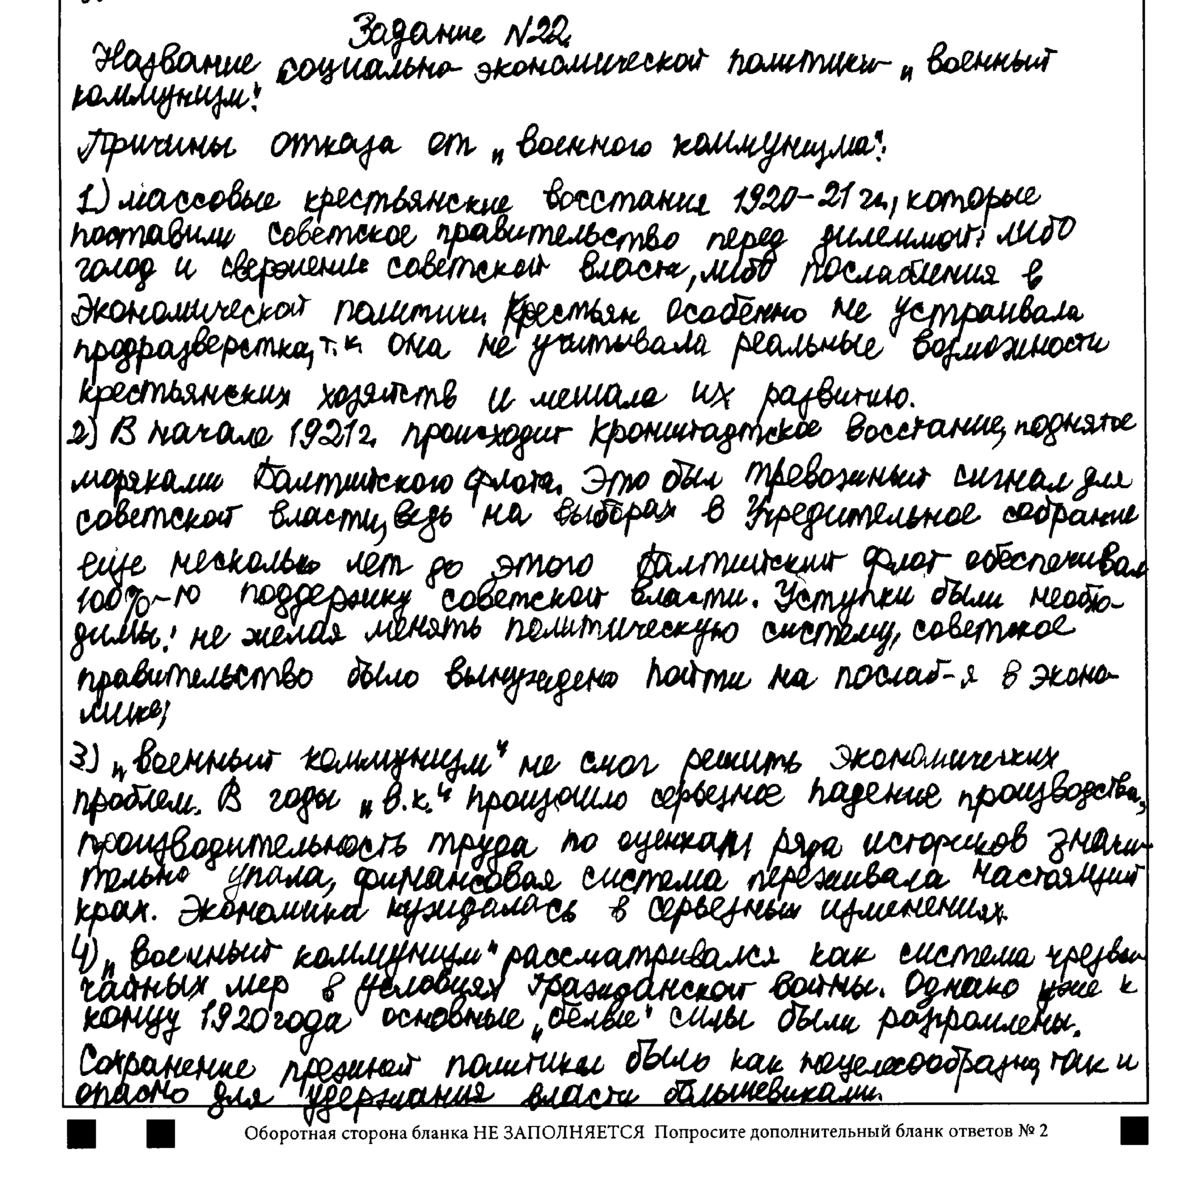 Задание №22.
Название социально-экономической политики- „военный
коммунизм".
Причины отказа от „военного коммунизма":
1) массовые крестьянские восстания 1920-21 гг., которые
поставили советское правительство перед дилеммой: либо
голод и свержение советской власти, либо послабления в
экономической политики. Крестьян особенно не устраивала
продразверстка, т.к. она не учитывала реальные возможности
крестьянских хозяйств и мешала их развитию.
2) В начале 1921г. происходит Кронштадтское восстание, поднятое
моряками Балтийского флота. Это был тревожный сигнал для
советской власти, ведь на выборах в Учредительное собрание
еще несколько лет до этого Балтийский флот обеспечивал
100%-ю поддержку советской власти. Уступки были необхо-
димы: не желая менять политическую систему, советское
правительство было вынуждено пойти на послаб-я в эконо-
мике;
3) „военный коммунизм" не смог решить экономических
проблем. В годы „в.к." произошло серьезное падение производства,
производительность труда по оценкам ряда историков значи-
тельно упала, финансовая система переживала настоящий
крах. Экономика нуждалась в серьезных изменениях.
4) „военный коммунизм" рассматривался как система чрезвы-
чайных мер в условиях Гражданской войны. Однако уже к
концу 1920 года основные „белые" силы были разгромлены.
Сохранение прежней политики было как нецелесообразно, так и
опасно для удержания власти большевиками.
Оборотная сторона бланка НЕ ЗАПОЛНЯЕТСЯ Попросите дополнительный бланк ответов № 2